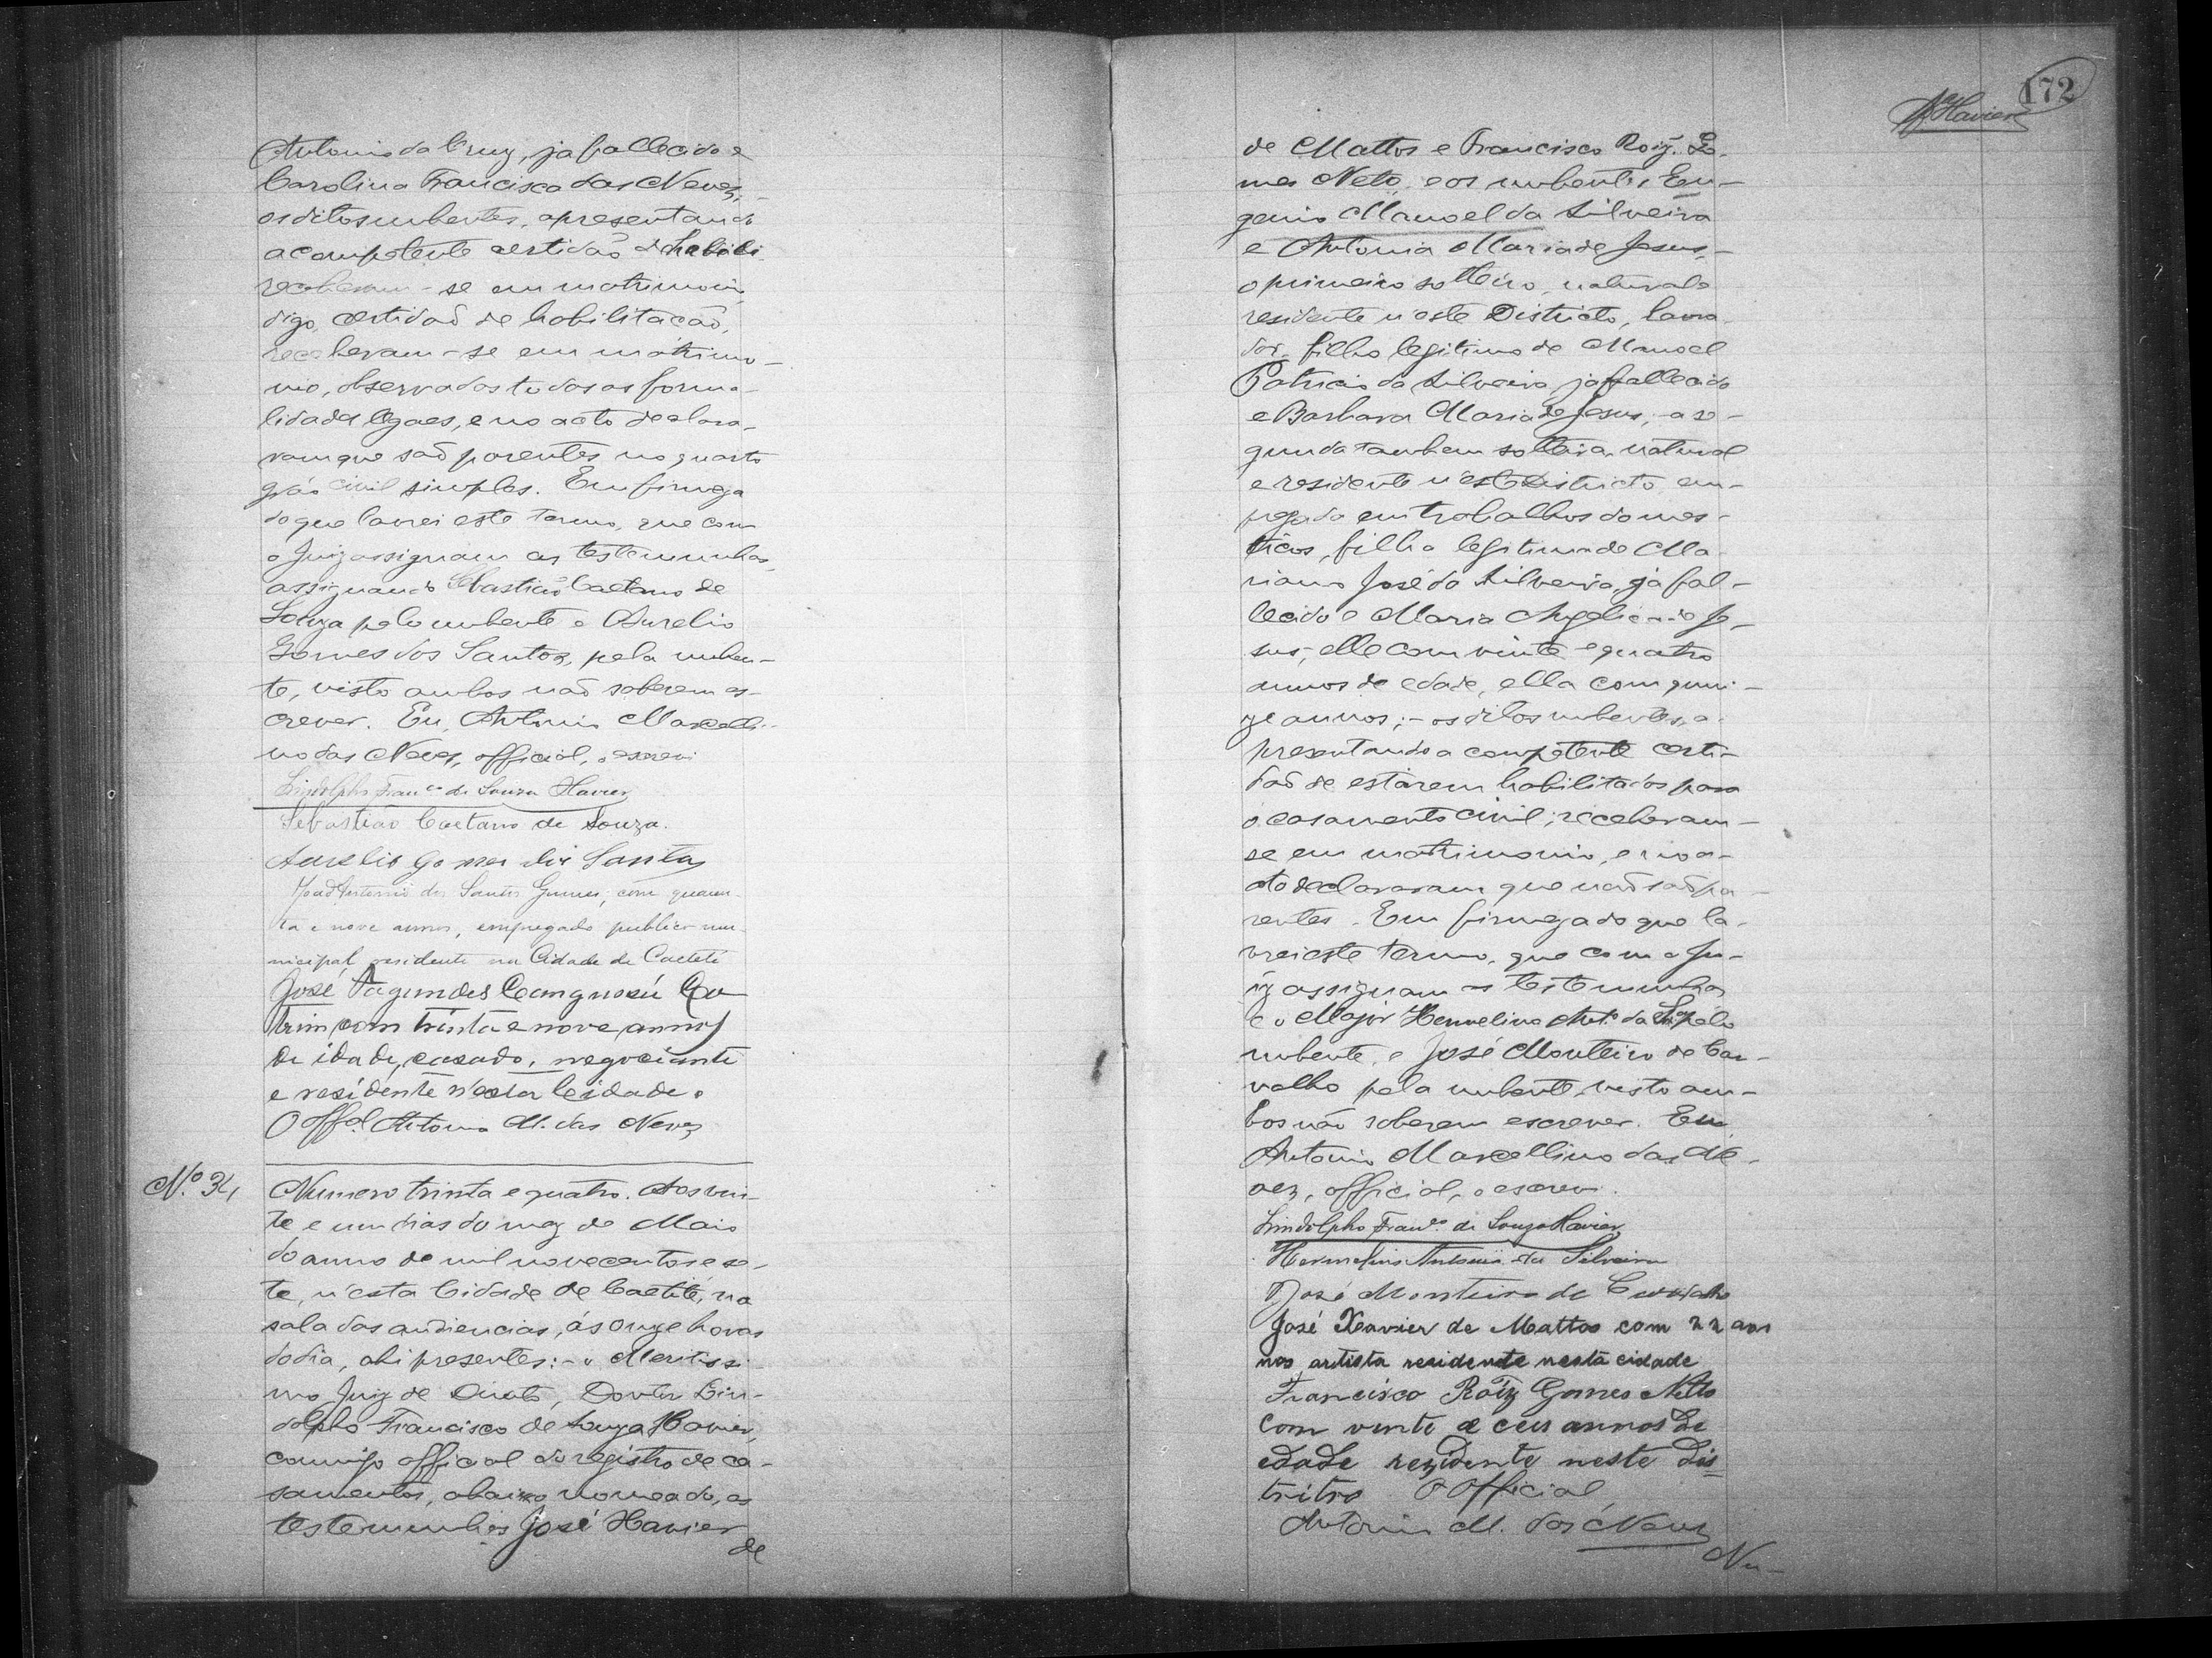 Antonio da Cruz, ja fallecido e
Carolina Francisca das Neves,-
os ditos nubentes, apresentando
a competente certidão de habili
receberam-se em matrimonio,
digo, certidão de habilitação,
receberam-se em matrimo-
nio, observadas todas as forma-
lidades legaes, e no acto declara-
ram que são parentes no quarto
gráo civil simples. Em firmeza
do que lavrei este termo, que com
o Juiz assignam as testemunhas,
assignando Sebastião Caetano de
Souza pelo nubente e Aurelio
Gomes dos Santos, pela nuben-
te, visto ambos não saberem es-
crever. Eu, Antonio Marcelli-
no das Neves, official, o escrevi
Lindolpho Franco de Souza Xavier
Sebastião Caetano de Souza.
Aurelio Gomes dos Santos
João Antonio dos Santos Gumes, com quaren-
ta e nove annos, empregado publico mu-
nicipal residente na Cidade de Caeteté
José Fagundes Cangussú Co
trim com trinta e nove annos
de idade, casado, negociante
e residente n'esta Ceidade.
O Offal Antonio M. das Neves
No. 34
Numero trinta e quatro. Aos vin-
te e um dias do mez de Maio
do anno de mil novecentos e se-
te, n'esta Cidade de Caetité, na
sala das audiencias, ás onze horas
do dia, ahi presentes:- o Meritissi-
mo Juiz de Direito, Doutor Lin-
dolpho Francisco de Souza Xavier,
commigo official do registro de ca-
samentos, abaixo nomeado, as
testemunhas José Xavier
de
172
Xavier
de Mattos e Francisco Roiz. Go-
mes Neto, e os nubentes Eu-
genio Manoel da Silveira
e Antonia Maria de Jesus,-
o primeiro solteiro, natural e
residente n'este Districto, lavra-
dor, filho legitimo de Manoel
Patricio da Silveira, ja fallecido
e Barbara Maria de Jesus;- a se-
gunda tambem solteira, natural
e residente n'este Districto, em-
pregada em trabalhos domes-
ticos, filha legitima de Ma-
riano José da Silveira, ja fal-
lecido e Maria Angelica de Je-
sus; elle com vinte e quatro
annos de edade, ella com quin-
ze annos;- os ditos nubentes, a-
presentando a competente certi-
dão de estarem habilitados para
o casamento civil; receberam-
se em matrimonio, e no a-
cto declararam que não são pa-
rentes. Em firmeza do que la-
vrei este termo, que com o Ju-
iz assignam as testemunhas
e o Major Hermelino Anto. da Sa. pelo
nubente, e José Monteiro de Car-
valho pela nubente, visto am-
bos não saberem escrever. Eu
Antonio Marcellino das Ne-
ves, official, o escrevi.
Lindolpho Franco. de Souza Xavier
Hermelino Antonio da Silveira
José Monteiro de Carvalho
José Xavier de Mattos com 22 an
nos artista residente nesta cidade
Francisco Roiz Gomes Netto
com vinte e annos de
edade rezidente neste Dis-
tritro O Official,
Antonio M. das Neves
Nu-